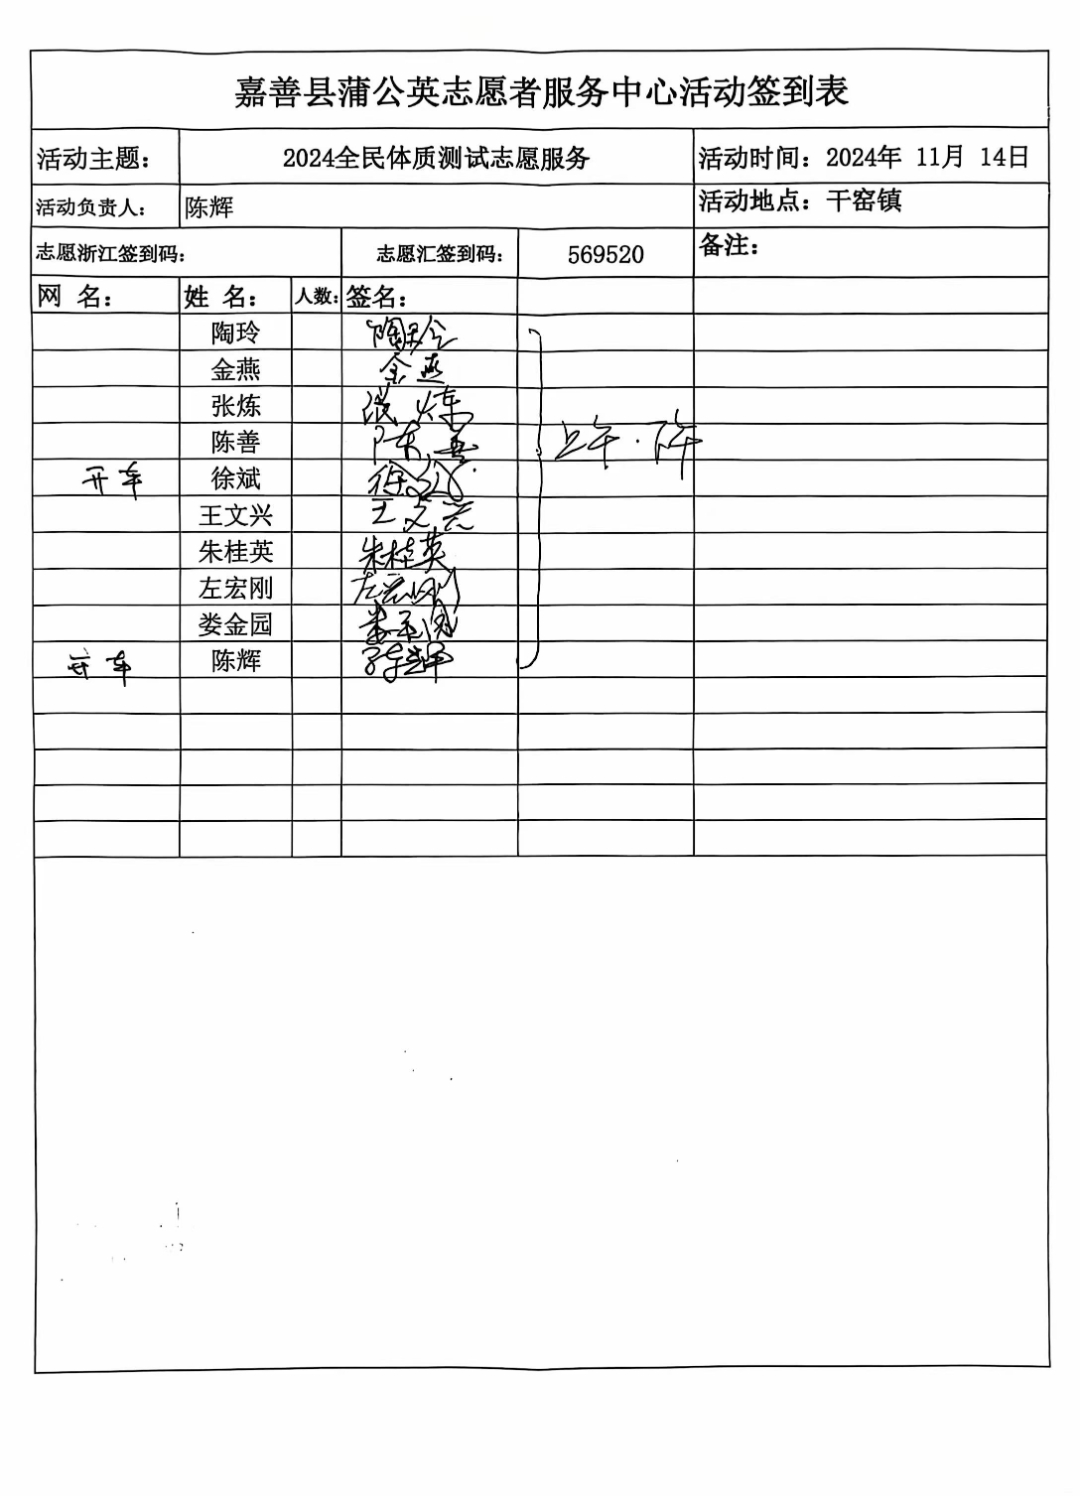 嘉善县蒲公英志愿者服务中心活动签到表
活动主题： 2024全民体质测试志愿服务 活动时间：2024年 11月 14日
活动负责人： 陈辉 活动地点：干窑镇
志愿浙江签到码： 志愿汇签到码： 569520 备注：
网 名： 姓 名： 人数： 签名：
陶玲 陶玲
金燕 金燕
张炼 张炼
陈善 陈善 上午．下午
开车 徐斌 徐斌
王文兴 王文兴
朱桂英 朱桂英
左宏刚 左宏刚
娄金园 娄金园
开车 陈辉 陈辉